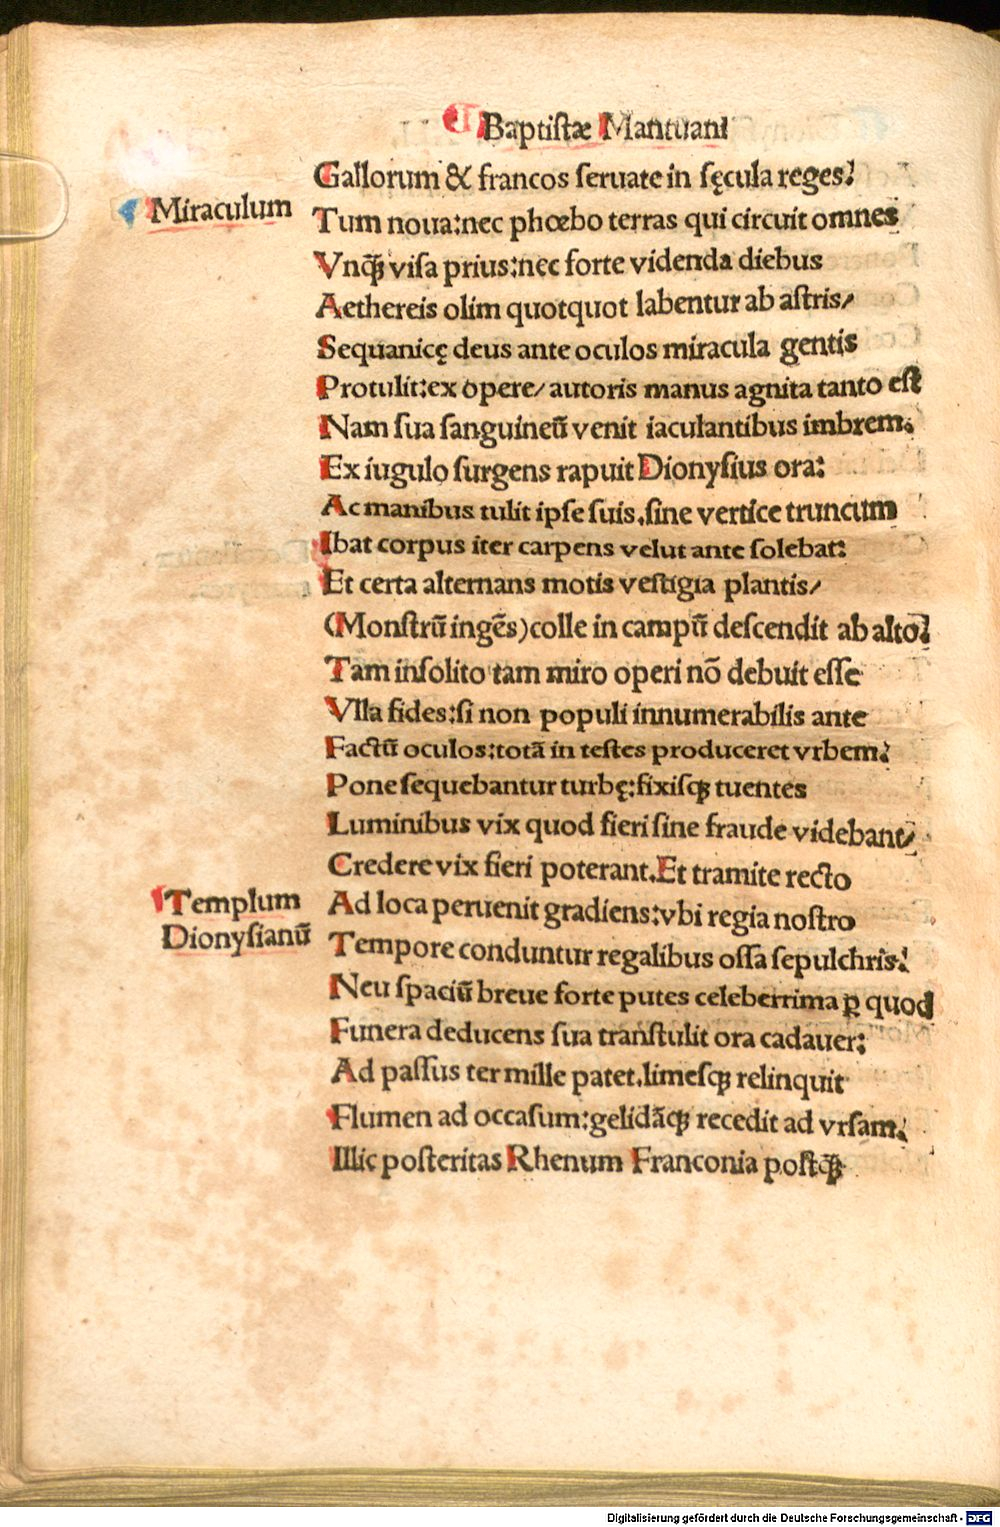 Baptistæ Mantuani
Gallorum & francos ſeruate in ſęcula reges.
Miraculum
Tum noua:nec phœbo terras qui circuit omnes
Vnꝗ̃ viſa prius:nec forte videnda diebus
Aethereis olim quotquot labentur ab aſtris/
Sequanicę deus ante oculos miracula gentis
Protulit:ex opere/ autoris manus agnita tanto eſt
Nam ſua ſanguineũ venit iaculantibus imbrem.
Ex iugulo ſurgens rapuit Dionyſius ora:
Ac manibus tulit ipſe ſuis.ſine vertice truncum
Ibat corpus iter carpens velut ante ſolebat:
Et certa alternans motis veſtigia plantis/
(Monſtrũ ingẽs)colle in campũ deſcendit ab alto.
Tam inſolito tam miro operi nõ debuit eſſe
Vlla fides:ſi non populi innumerabilis ante
Factũ oculos:totã in teſtes produceret vrbem.
Pone ſequebantur turbę:fixiſꝗ tuentes
Luminibus vix quod fieri ſine fraude videbant/
Credere vix fieri poterant.Et tramite recto
Templum
Dionyſianũ
Ad loca peruenit gradiens:vbi regia noſtro
Tempore conduntur regalibus oſſa ſepulchris.
Neu ſpaciũ breue forte putes celeberrima ꝑ quod
Funera deducens ſua tranſtulit ora cadauer:
Ad paſſus ter mille patet.limeſꝗ relinquit
Flumen ad occaſum:gelidãꝗ recedit ad vrſam.
Illic poſteritas Rhenum Franconia poſtꝗ̃
Digitalisierung gefördert durch die Deutsche Forschungsgemeinschaft - DFG